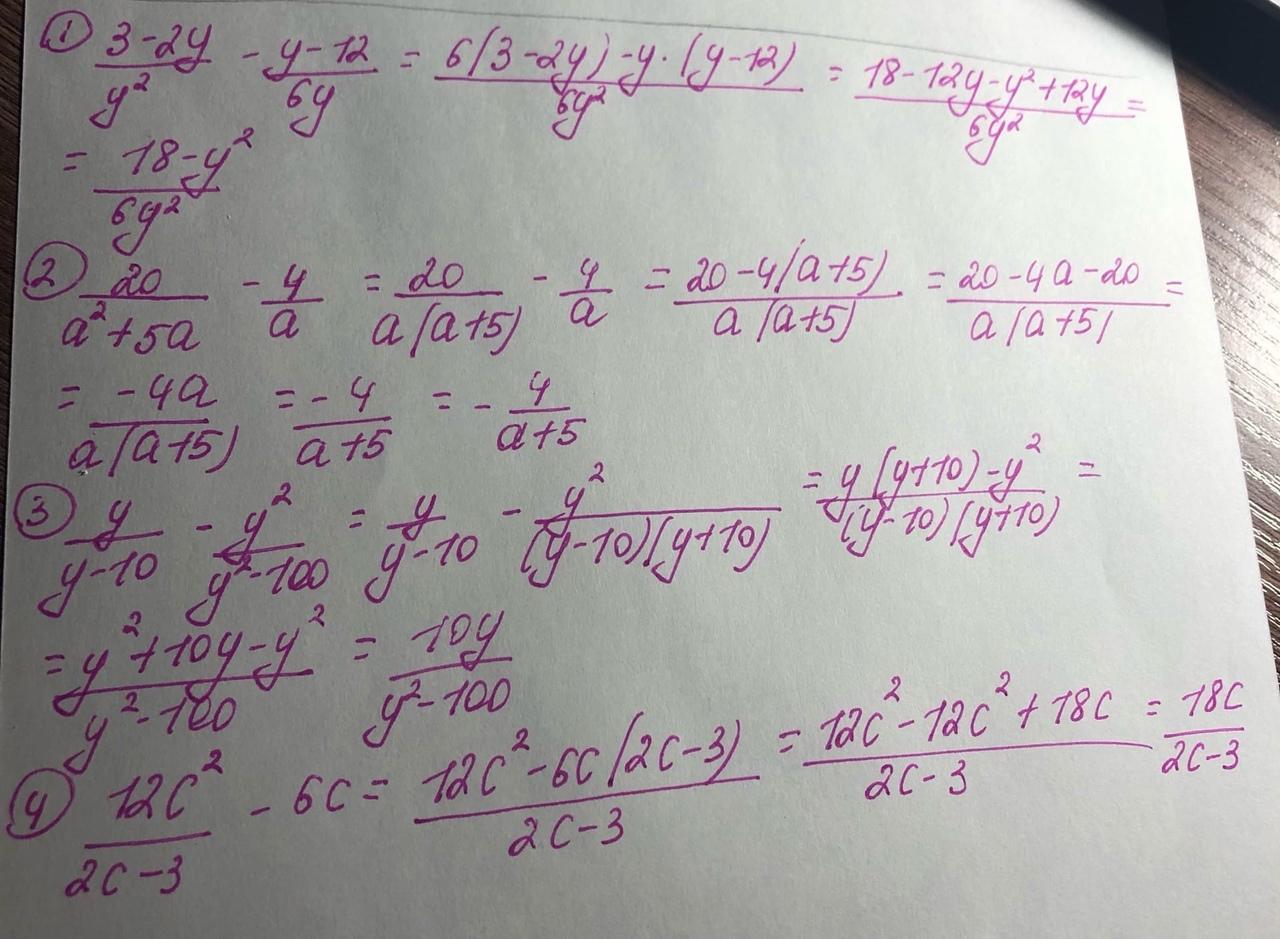 ① (3-2y)/y² - (y-12)/6y = (6(3-2y)-y·(y-12))/6y² = (18-12y-y²+12y)/6y² =
= (18-y²)/6y²
② 20/(a²+5a) - 4/a = 20/(a(a+5)) - 4/a = (20-4(a+5))/(a(a+5)) = (20-4a-20)/(a(a+5)) =
= -4a/(a(a+5)) = -4/(a+5) = - 4/(a+5)
③ y/(y-10) - y²/(y²-100) = y/(y-10) - y²/((y-10)(y+10)) = (y(y+10)-y²)/((y-10)(y+10)) =
= (y²+10y-y²)/(y²-100) = 10y/(y²-100)
④ 12c²/(2c-3) - 6c = (12c²-6c(2c-3))/(2c-3) = (12c²-12c²+18c)/(2c-3) = 18c/(2c-3)